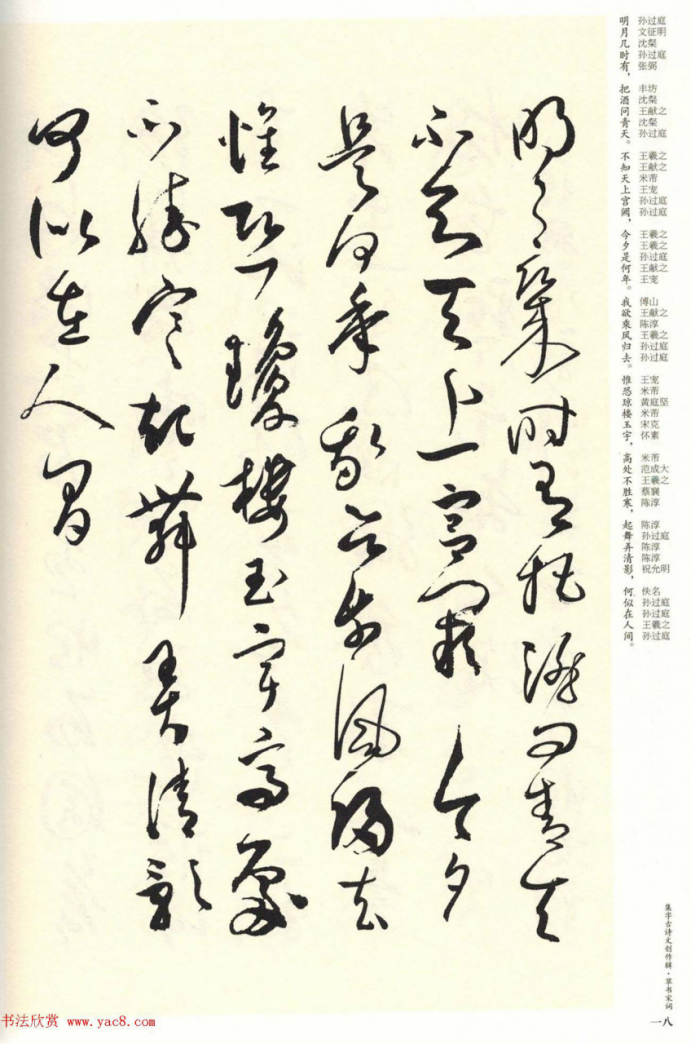 明月幾時有把酒問青天
不知天上宫闕今夕
是何年我欲乘風歸去
惟恐瓊樓玉宇高處
不勝寒起舞弄清影
何似在人間
明月几时有，把酒问青天。不知天上宫阙，今夕是何年。我欲乘风归去。惟恐琼楼玉宇，高处不胜寒，起舞弄清影，何似在人间。
孙过庭
文征明
沈粲
孙过庭
张弼
丰坊
沈粲
王献之
沈粲
孙过庭
王羲之
王献之
米芾
王宠
孙过庭
孙过庭
王羲之
王羲之
孙过庭
王献之
王宠
傅山
王献之
陈淳
王羲之
孙过庭
孙过庭
王宠
米芾
黄庭坚
米芾
宋克
怀素
米芾
范成大
王羲之
蔡襄
陈淳
陈淳
孙过庭
陈淳
陈淳
祝允明
佚名
孙过庭
孙过庭
王羲之
孙过庭
集字古诗文创作辑·草书宋词
一八
书法欣赏 www.yac8.com